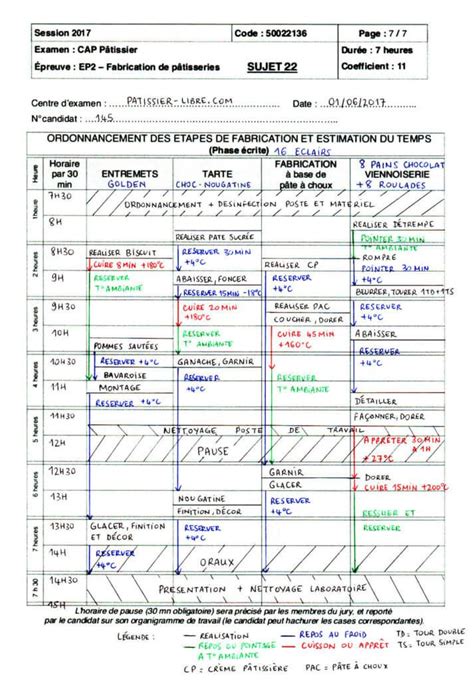 Session 2017 Code : 50022136 Page : 7 / 7
Examen : CAP Pâtissier Durée : 7 heures
Épreuve : EP2 – Fabrication de pâtisseries SUJET 22 Coefficient : 11
Centre d'examen : PATISSIER-LIBRE.COM Date : 01/06/2017
N°candidat : 145
ORDONNANCEMENT DES ETAPES DE FABRICATION ET ESTIMATION DU TEMPS
(Phase écrite) 16 ECLAIRS
Heure Horaire par 30 min ENTREMETS GOLDEN TARTE CHOC-NOUGATINE FABRICATION à base de pâte à choux 8 PAINS CHOCOLAT VIENNOISERIE + 8 ROULADES
1 heure 7H30
ORDONNANCEMENT + DESINFECTION POSTE ET MATERIEL
8H RÉALISER DÉTREMPE
REALISER PATE SUCRÉE POINTER 30 MIN T° AMBIANTE
2 heures 8H30 REALISER BISCUIT RÉSERVER 30 MIN +4°C ROMPRE
CUIRE 8 MIN +180°C REALISER CP POINTER 30 MIN +4°C
9H RESERVER T° AMBIANTE ABAISSER, FONCER RÉSERVER +4°C
RESERVER 15 MIN -18°C BEURRER, TOURER 1TD+1TS
3 heures 9H30 CUIRE 20 MIN +180°C REALISER PAC RÉSERVER +4°C
COUCHER, DORER
10H RÉSERVER T° AMBIANTE CUIRE 45 MIN +160°C ABAISSER
POMMES SAUTÉES RÉSERVER +4°C
4 heures 10H30 RÉSERVER +4°C GANACHE, GARNIR
BAVAROISE RÉSERVER +4°C RÉSERVER T° AMBIANTE
11H MONTAGE DÉTAILLER
RESERVER +4°C
5 heures 11H30 FAÇONNER, DORER
NETTOYAGE POSTE DE TRAVAIL
12H PAUSE APPRÊTER 30 MIN A 1H +27°C
6 heures 12H30 GARNIR DORER
GLACER CUIRE 15 MIN +200°C
13H NOUGATINE RÉSERVER +4°C
FINITION, DÉCOR RESSUER ET
7 heures 13H30 GLACER, FINITION ET DÉCOR RÉSERVER +4°C RÉSERVER
14H RÉSERVER +4°C ORAUX
7 h 30 14H30
PRESENTATION + NETTOYAGE LABORATOIRE
15H
L'horaire de pause (30 mn obligatoire) sera précisé par les membres du jury, et reporté
par le candidat sur son organigramme de travail (le candidat peut hachurer les cases correspondantes).
LÉGENDE : — REALISATION — REPOS AU FROID TD = TOUR DOUBLE
— REPOS OU POINTAGE A T° AMBIANTE — CUISSON OU APPRÊT TS = TOUR SIMPLE
CP = CRÈME PÂTISSIÈRE PAC = PÂTE À CHOUX